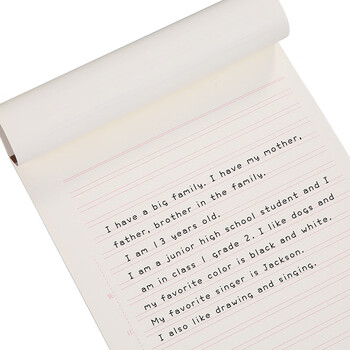 I have a big family. I have my mother,
father, brother in the family.
I am 13 years old.
I am a junior high school student and I
am in class 1 grade 2. I like dogs and
my favorite color is black and white.
My favorite singer is Jackson.
I also like drawing and singing.